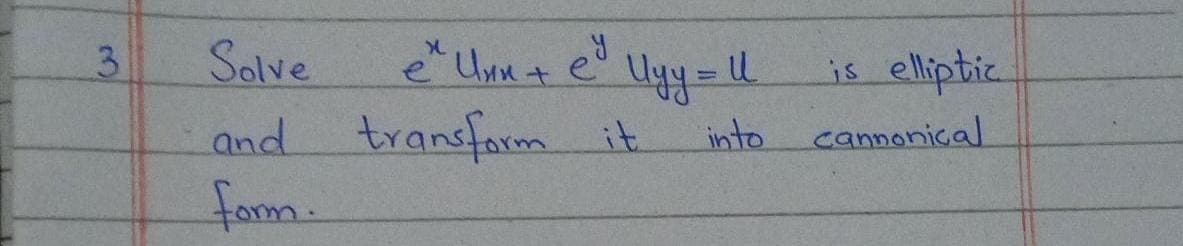 3 Solve e^x Uxx + e^y Uyy = U is elliptic
and transform it into cannonical
form.